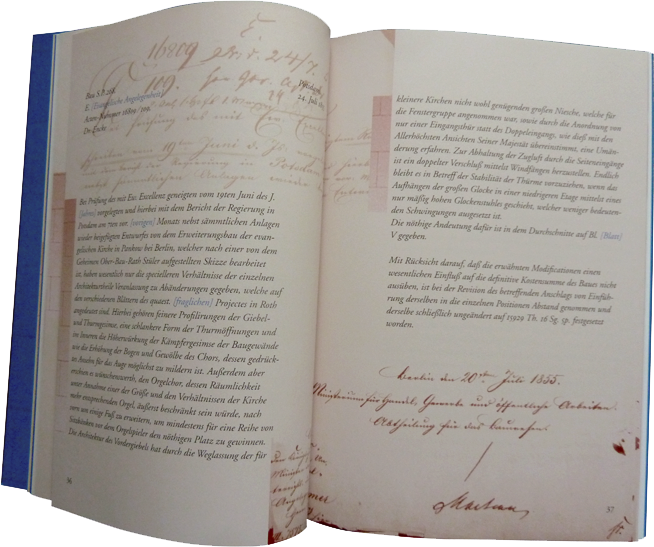 16809
109.
Bau S.P. 258.
E. [Evangelische Angelegenheiten]
Acten-Nummer 16809/109.
De Ende
24. Juli
Bei Prüfung des mit Ew. Excellenz geneigten vom 19ten Juni des J.
[ahres] vorgelegten und hierbei mit dem Bericht der Regierung in
Potsdam am 7ten vor. [vorigen] Monats nebst sämmtlichen Anlagen
wieder beigefügten Entwurfes von dem Erweiterungsbau der evan-
gelischen Kirche in Pankow bei Berlin, welcher nach einer von dem
Geheimen Ober-Bau-Rath Stüler aufgestellten Skizze bearbeitet
ist, haben wesentlich nur die specielleren Verhältnisse der einzelnen
Architekturtheile Veranlassung zu Abänderungen gegeben, welche auf
den verschiedenen Blättern des quaest. [fraglichen] Projectes in Roth
angedeutet sind. Hierher gehören feinere Profilirungen der Giebel-
und Thurmgesimse, eine schlankere Form der Thurmöffnungen und
im Innern die Höherrückung der Kämpfergesimse der Baugewände
wie die Erhöhung der Bogen und Gewölbe des Chors, dessen gedrück-
tes Ansehn für das Auge möglichst zu mildern ist. Außerdem aber
erscheint es wünschenswerth, den Orgelchor, dessen Räumlichkeit
unter Annahme einer der Größe und den Verhältnissen der Kirche
mehr entsprechenden Orgel, äußerst beschränkt sein würde, nach
vorn um einige Fuß zu erweitern, um mindestens für eine Reihe von
Sitzbänken vor dem Orgelspieler den nöthigen Platz zu gewinnen.
Die Architektur des Vordergiebels hat durch die Weglassung der für
56
kleinere Kirchen nicht wohl genügenden großen Niesche, welche für
die Fenstergruppe angenommen war, sowie durch die Anordnung von
nur einer Eingangsthür statt des Doppeleingangs, wie dieß mit den
Allerhöchsten Ansichten Seiner Majestät übereinstimmt, eine Umän-
derung erfahren. Zur Abhaltung der Zugluft durch die Seiteneingänge
ist ein doppelter Verschluß mittelst Windfängen herzustellen. Endlich
bleibt es in Betreff der Stabilität der Thürme vorzuziehen, wenn das
Aufhängen der großen Glocke in einer niedrigeren Etage mittelst eines
nur mäßig hohen Glockenstuhles geschieht, welcher weniger bedeuten-
den Schwingungen ausgesetzt ist.
Die nöthige Andeutung dafür ist in dem Durchschnitte auf Bl. [Blatt]
V gegeben.
Mit Rücksicht darauf, daß die erwähnten Modificationen einen
wesentlichen Einfluß auf die definitive Kostensumme des Baues nicht
ausüben, ist bei der Revision des betreffenden Anschlags von Einfüh-
rung derselben in die einzelnen Positionen Abstand genommen und
derselbe schließlich ungeändert auf 15929 Th. 26 Sg. 5p. festgesetzt
worden.
Berlin den 20ten Julii 1855.
Ministerium für Handel, Gewerbe und öffentliche Arbeiten.
Abtheilung für das Bauwesen.
57